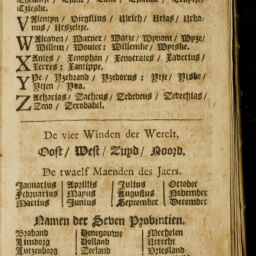 Theslie.
V Valentyn / Virgilius / Ulrich / Urias / Urba-
nus / Urselitje.
W Walraven / Warner / Watze / Wynant / Wyze /
Willem / Wouter: Willemtje / Wytske.
X Xantes / Xenophon / Xenocrates / Xaverius /
Xerxes: Xantippe.
Y Ype / Yzebrand / Yzedorus: Ytje / Yske /
Ytjen / Yva.
Z Zacharias / Zacheus / Zebedeus / Zedechias /
Zeno / Zerobabel.
De vier Winden der Werelt,
Oost / West / Zuyd / Noord.
De twaelf Maenden des Jaers.
Januarius Aprillis Julius October
Februarius Mayus Augustus November
Martius Junius September December
Namen der Seven Provintien.
Braband Henegouwe Mechelen
Limborg Holland Utrecht
Lutzenborg Zeeland Vriesland